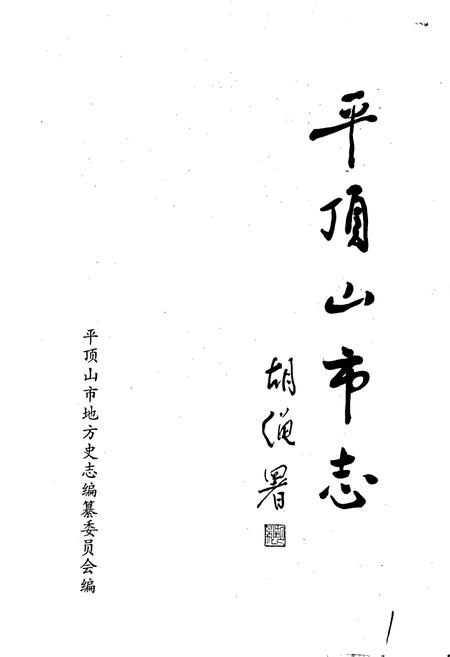 平顶山市志
胡绳署
平顶山市地方史志编纂委员会编